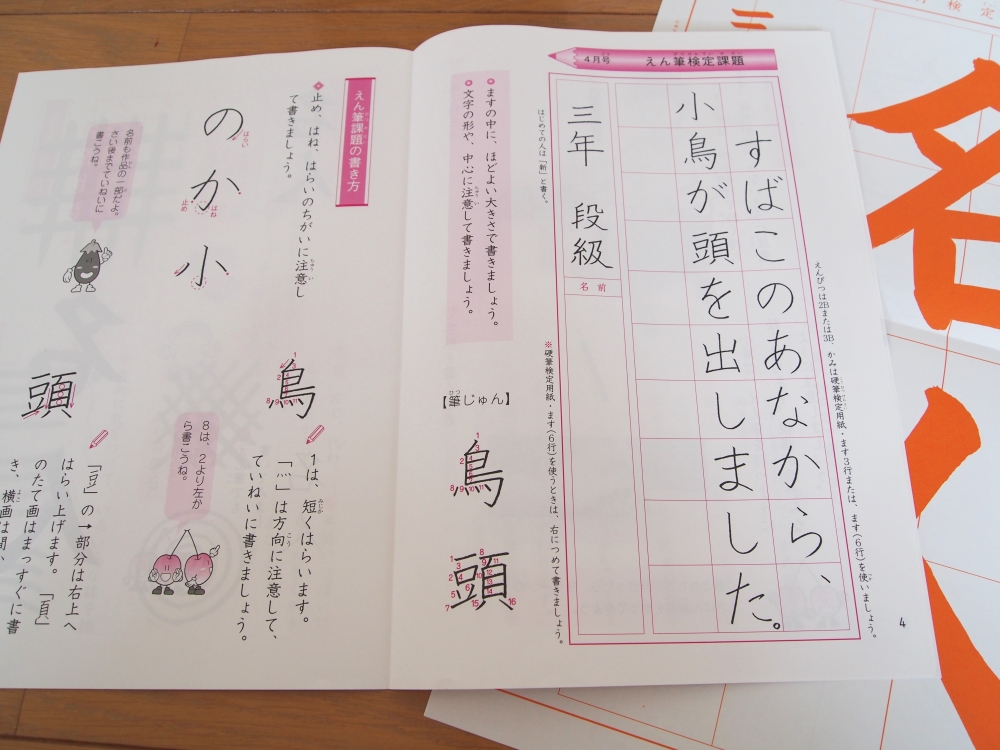 4月号
えん筆検定課題
えんぴつは2Bまたは3B、かみは硬筆検定用紙・ます3行または、ます(6行)を使いましょう。
すばこのあなから、
小鳥が頭を出しました。
三年 段級
名前
はじめての人は「新」と書く。
※硬筆検定用紙・ます(6行)を使うときは、右につめて書きましょう。
ますの中に、ほどよい大きさで書きましょう。
文字の形や、中心に注意して書きましょう。
【筆じゅん】
鳥
頭
4
えん筆課題の書き方
止め、はね、はらいのちがいに注意し
て書きましょう。
の
はらい
か
はね
止め
小
名前も作品の一部だよ。
さい後までていねいに
書こうね。
鳥
1は、短くはらいます。
「灬」は方向に注意して、
ていねいに書きましょう。
8は、2より左か
ら書こうね。
頭
「豆」の→部分は右上へ
はらい上げます。「頁」
のたて画はまっすぐに書
き、横画は間、
検定
名